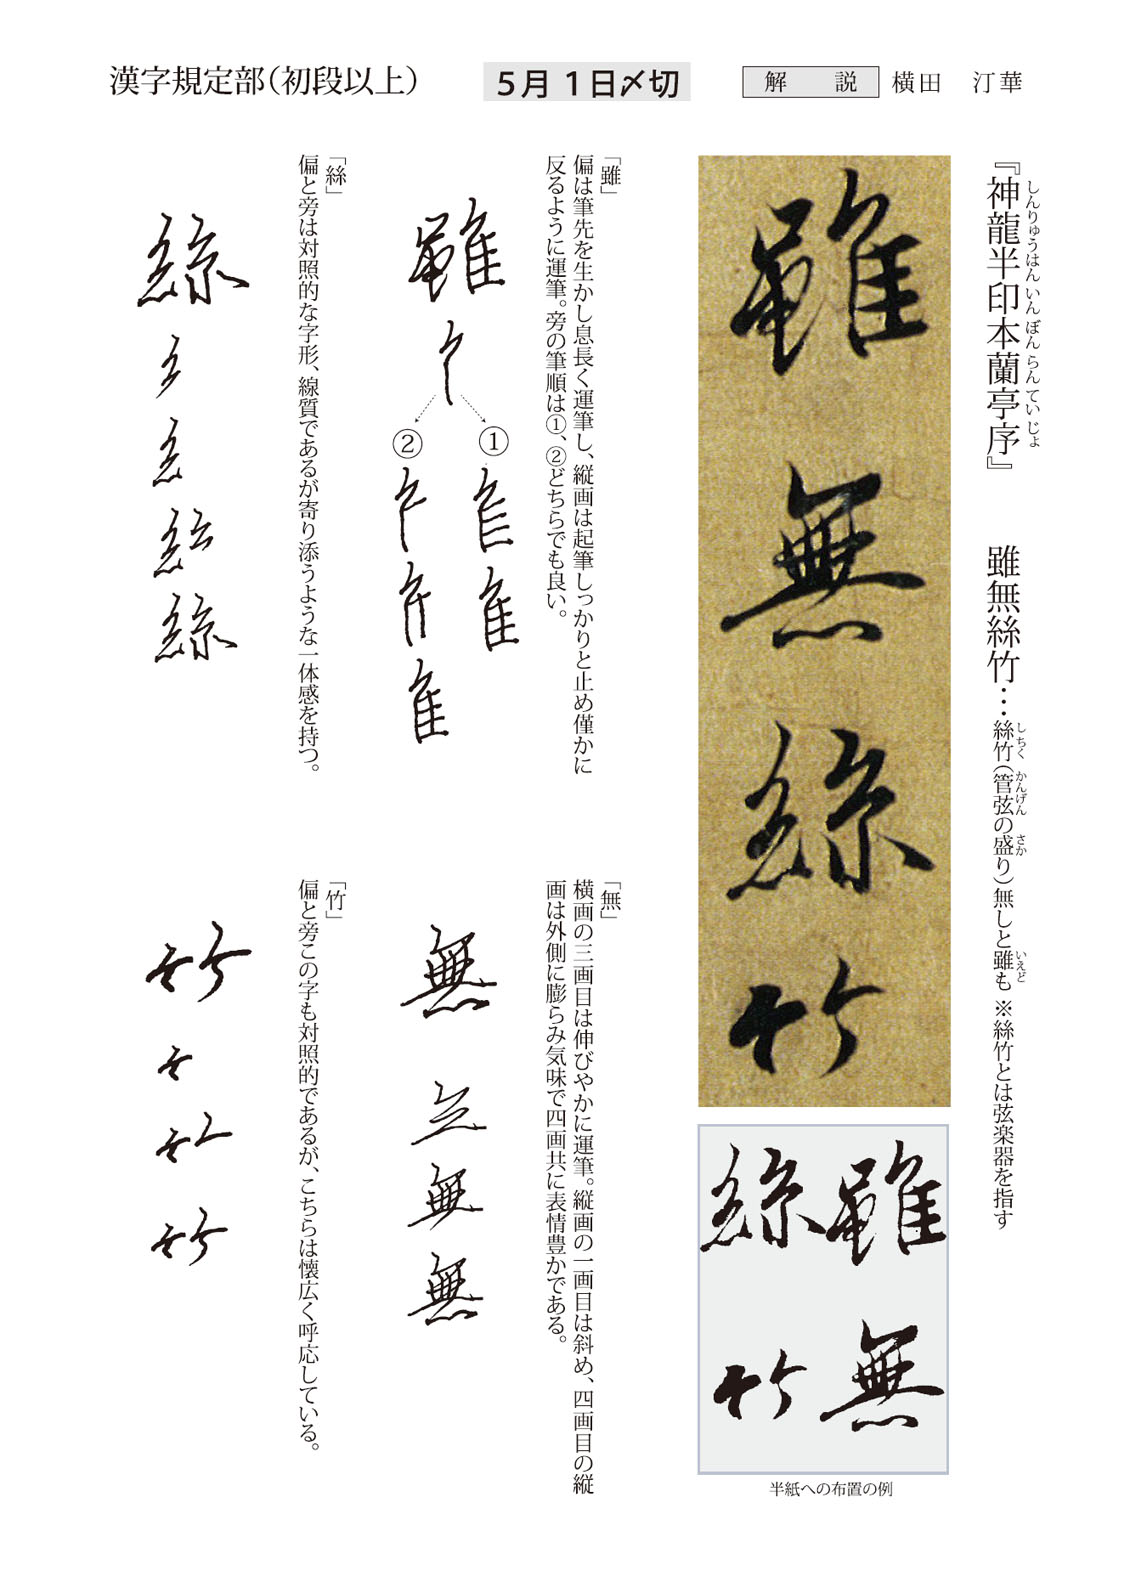 漢字規定部（初段以上）
５月１日〆切
解　説
横田　汀華
『神龍半印本蘭亭序』
しんりゅうはんいんぼんらんていじょ
雖無絲竹…絲竹（管弦の盛り）無しと雖も ※絲竹とは弦楽器を指す
しちく かんげん さか いえど
雖
無
絲
竹
雖無
絲竹
半紙への布置の例
「雖」
偏は筆先を生かし息長く運筆し、縦画は起筆しっかりと止め僅かに
反るように運筆。旁の筆順は①、②どちらでも良い。
雖
①
②
「無」
横画の三画目は伸びやかに運筆。縦画の一画目は斜め、四画目の縦
画は外側に膨らみ気味で四画共に表情豊かである。
無
無
「絲」
偏と旁は対照的な字形、線質であるが寄り添うような一体感を持つ。
絲
絲
「竹」
偏と旁この字も対照的であるが、こちらは懐広く呼応している。
竹
竹